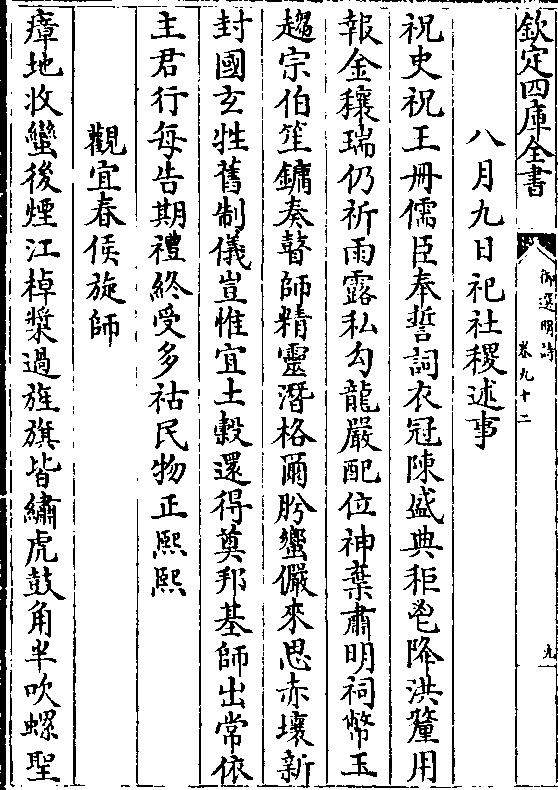 欽定四庫全書
御選明詩
卷九十二
九
八月九日祀社稷述事
祝史祝王冊儒臣奉誓詞衣冠陳盛典秬鬯降洪釐用
報金穰瑞仍祈雨露私勾龍嚴配位神棄肅明祠幣玉
趨宗伯笙鏞奏瞽師精靈潛格爾肸蠁儼來思赤壤新
封國玄牲舊制儀豈惟宜土糓還得奠邦基師出常依
主君行每告期禮終受多祜民物正熙熙
觀宜春侯旋師
瘴地收蠻後煙江棹槳過旌旗皆繡虎鼓角半吹螺聖